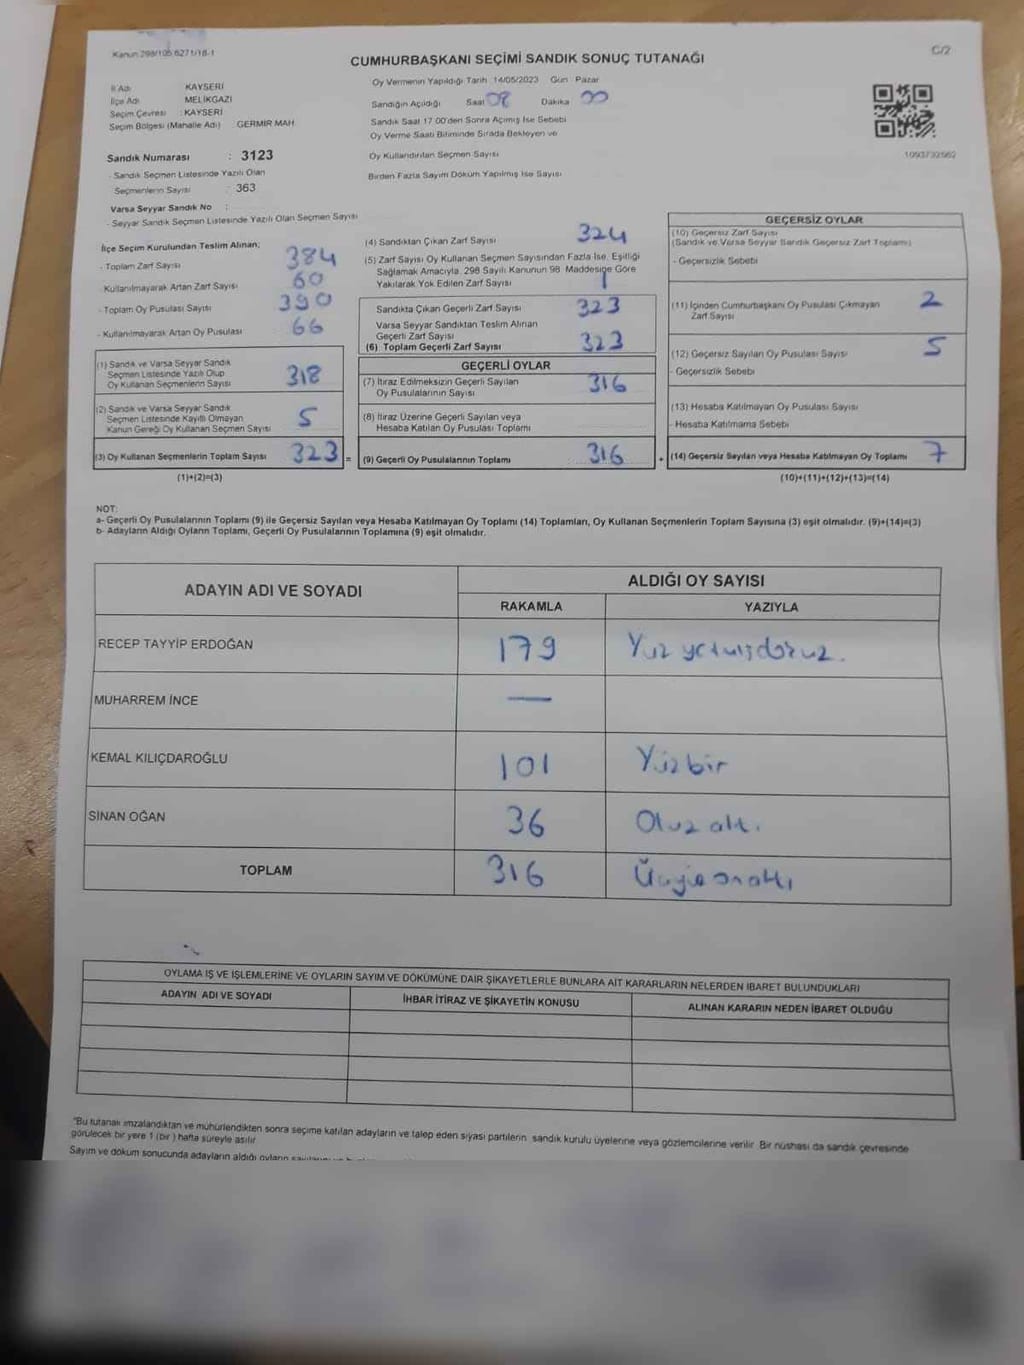 Kanun 298/105 6271/18-1
C/2
CUMHURBAŞKANI SEÇİMİ SANDIK SONUÇ TUTANAĞI
İl Adı KAYSERİ
İlçe Adı MELİKGAZİ
Seçim Çevresi : KAYSERİ
Seçim Bölgesi (Mahalle Adı) GERMİR MAH
Sandık Numarası : 3123
- Sandık Seçmen Listesinde Yazılı Olan
Seçmenlerin Sayısı : 363
Varsa Seyyar Sandık No :
- Seyyar Sandık Seçmen Listesinde Yazılı Olan Seçmen Sayısı
Oy Vermenin Yapıldığı Tarih 14/05/2023 Gün Pazar
Sandığın Açıldığı Saat 08 Dakika 00
Sandık Saat 17.00'den Sonra Açımış İse Sebebi
Oy Verme Saati Bitiminde Sırada Bekleyen ve
Oy Kullandırılan Seçmen Sayısı
Birden Fazla Sayım Döküm Yapılmış İse Sayısı
1093732562
İlçe Seçim Kurulundan Teslim Alınan;
- Toplam Zarf Sayısı 384
- Kullanılmayarak Artan Zarf Sayısı 60
- Toplam Oy Pusulası Sayısı 390
- Kullanılmayarak Artan Oy Pusulası 66
(1) Sandık ve Varsa Seyyar Sandık
Seçmen Listesinde Yazılı Olup
Oy Kullanan Seçmenlerin Sayısı 318
(2) Sandık ve Varsa Seyyar Sandık
Seçmen Listesinde Kayıtlı Olmayan
Kanun Gereği Oy Kullanan Seçmen Sayısı 5
(3) Oy Kullanan Seçmenlerin Toplam Sayısı 323 =
(1)+(2)=(3)
(4) Sandıktan Çıkan Zarf Sayısı 324
(5) Zarf Sayısı Oy Kullanan Seçmen Sayısından Fazla İse, Eşitliği
Sağlamak Amacıyla, 298 Sayılı Kanunun 98. Maddesine Göre
Yakılarak Yok Edilen Zarf Sayısı 1
Sandıkta Çıkan Geçerli Zarf Sayısı 323
Varsa Seyyar Sandıktan Teslim Alınan
Geçerli Zarf Sayısı
(6) Toplam Geçerli Zarf Sayısı 323
GEÇERLİ OYLAR
(7) İtiraz Edilmeksizin Geçerli Sayılan
Oy Pusulalarının Sayısı 316
(8) İtiraz Üzerine Geçerli Sayılan veya
Hesaba Katılan Oy Pusulası Toplamı
(9) Geçerli Oy Pusulalarının Toplamı 316 +
GEÇERSİZ OYLAR
(10) Geçersiz Zarf Sayısı
(Sandık ve Varsa Seyyar Sandık Geçersiz Zarf Toplamı)
- Geçersizlik Sebebi
(11) İçinden Cumhurbaşkanı Oy Pusulası Çıkmayan
Zarf Sayısı 2
(12) Geçersiz Sayılan Oy Pusulası Sayısı 5
- Geçersizlik Sebebi
(13) Hesaba Katılmayan Oy Pusulası Sayısı
- Hesaba Katılmama Sebebi
(14) Geçersiz Sayılan veya Hesaba Katılmayan Oy Toplamı 7
(10)+(11)+(12)+(13)=(14)
NOT:
a- Geçerli Oy Pusulalarının Toplamı (9) ile Geçersiz Sayılan veya Hesaba Katılmayan Oy Toplamı (14) Toplamları, Oy Kullanan Seçmenlerin Toplam Sayısına (3) eşit olmalıdır. (9)+(14)=(3)
b- Adayların Aldığı Oyların Toplamı, Geçerli Oy Pusulalarının Toplamına (9) eşit olmalıdır.
ADAYIN ADI VE SOYADI
ALDIĞI OY SAYISI
RAKAMLA YAZIYLA
RECEP TAYYİP ERDOĞAN 179 Yüz yetmişdokuz.
MUHARREM İNCE —
KEMAL KILIÇDAROĞLU 101 Yüzbir
SİNAN OĞAN 36 Otuz altı.
TOPLAM 316 Üçyüzonaltı
OYLAMA İŞ VE İŞLEMLERİNE VE OYLARIN SAYIM VE DÖKÜMÜNE DAİR ŞİKAYETLERLE BUNLARA AİT KARARLARIN NELERDEN İBARET BULUNDUKLARI
ADAYIN ADI VE SOYADI İHBAR İTİRAZ VE ŞİKAYETİN KONUSU ALINAN KARARIN NEDEN İBARET OLDUĞU
"Bu tutanak imzalandıktan ve mühürlendikten sonra seçime katılan adayların ve talep eden siyasi partilerin sandık kurulu üyelerine veya gözlemcilerine verilir. Bir nüshası da sandık çevresinde
görülecek bir yere 1 (bir) hafta süreyle asılır
Sayım ve döküm sonucunda adayların aldığı oyların